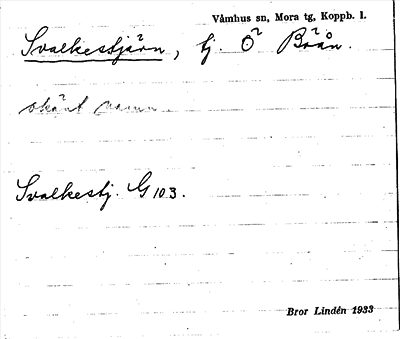 Våmhus sn, Mora tg, Koppb. l.
Svalkestjärn, tj. Ö Bråån.
okänt namn
Svalkestj. G 103.
Bror Lindén 1933